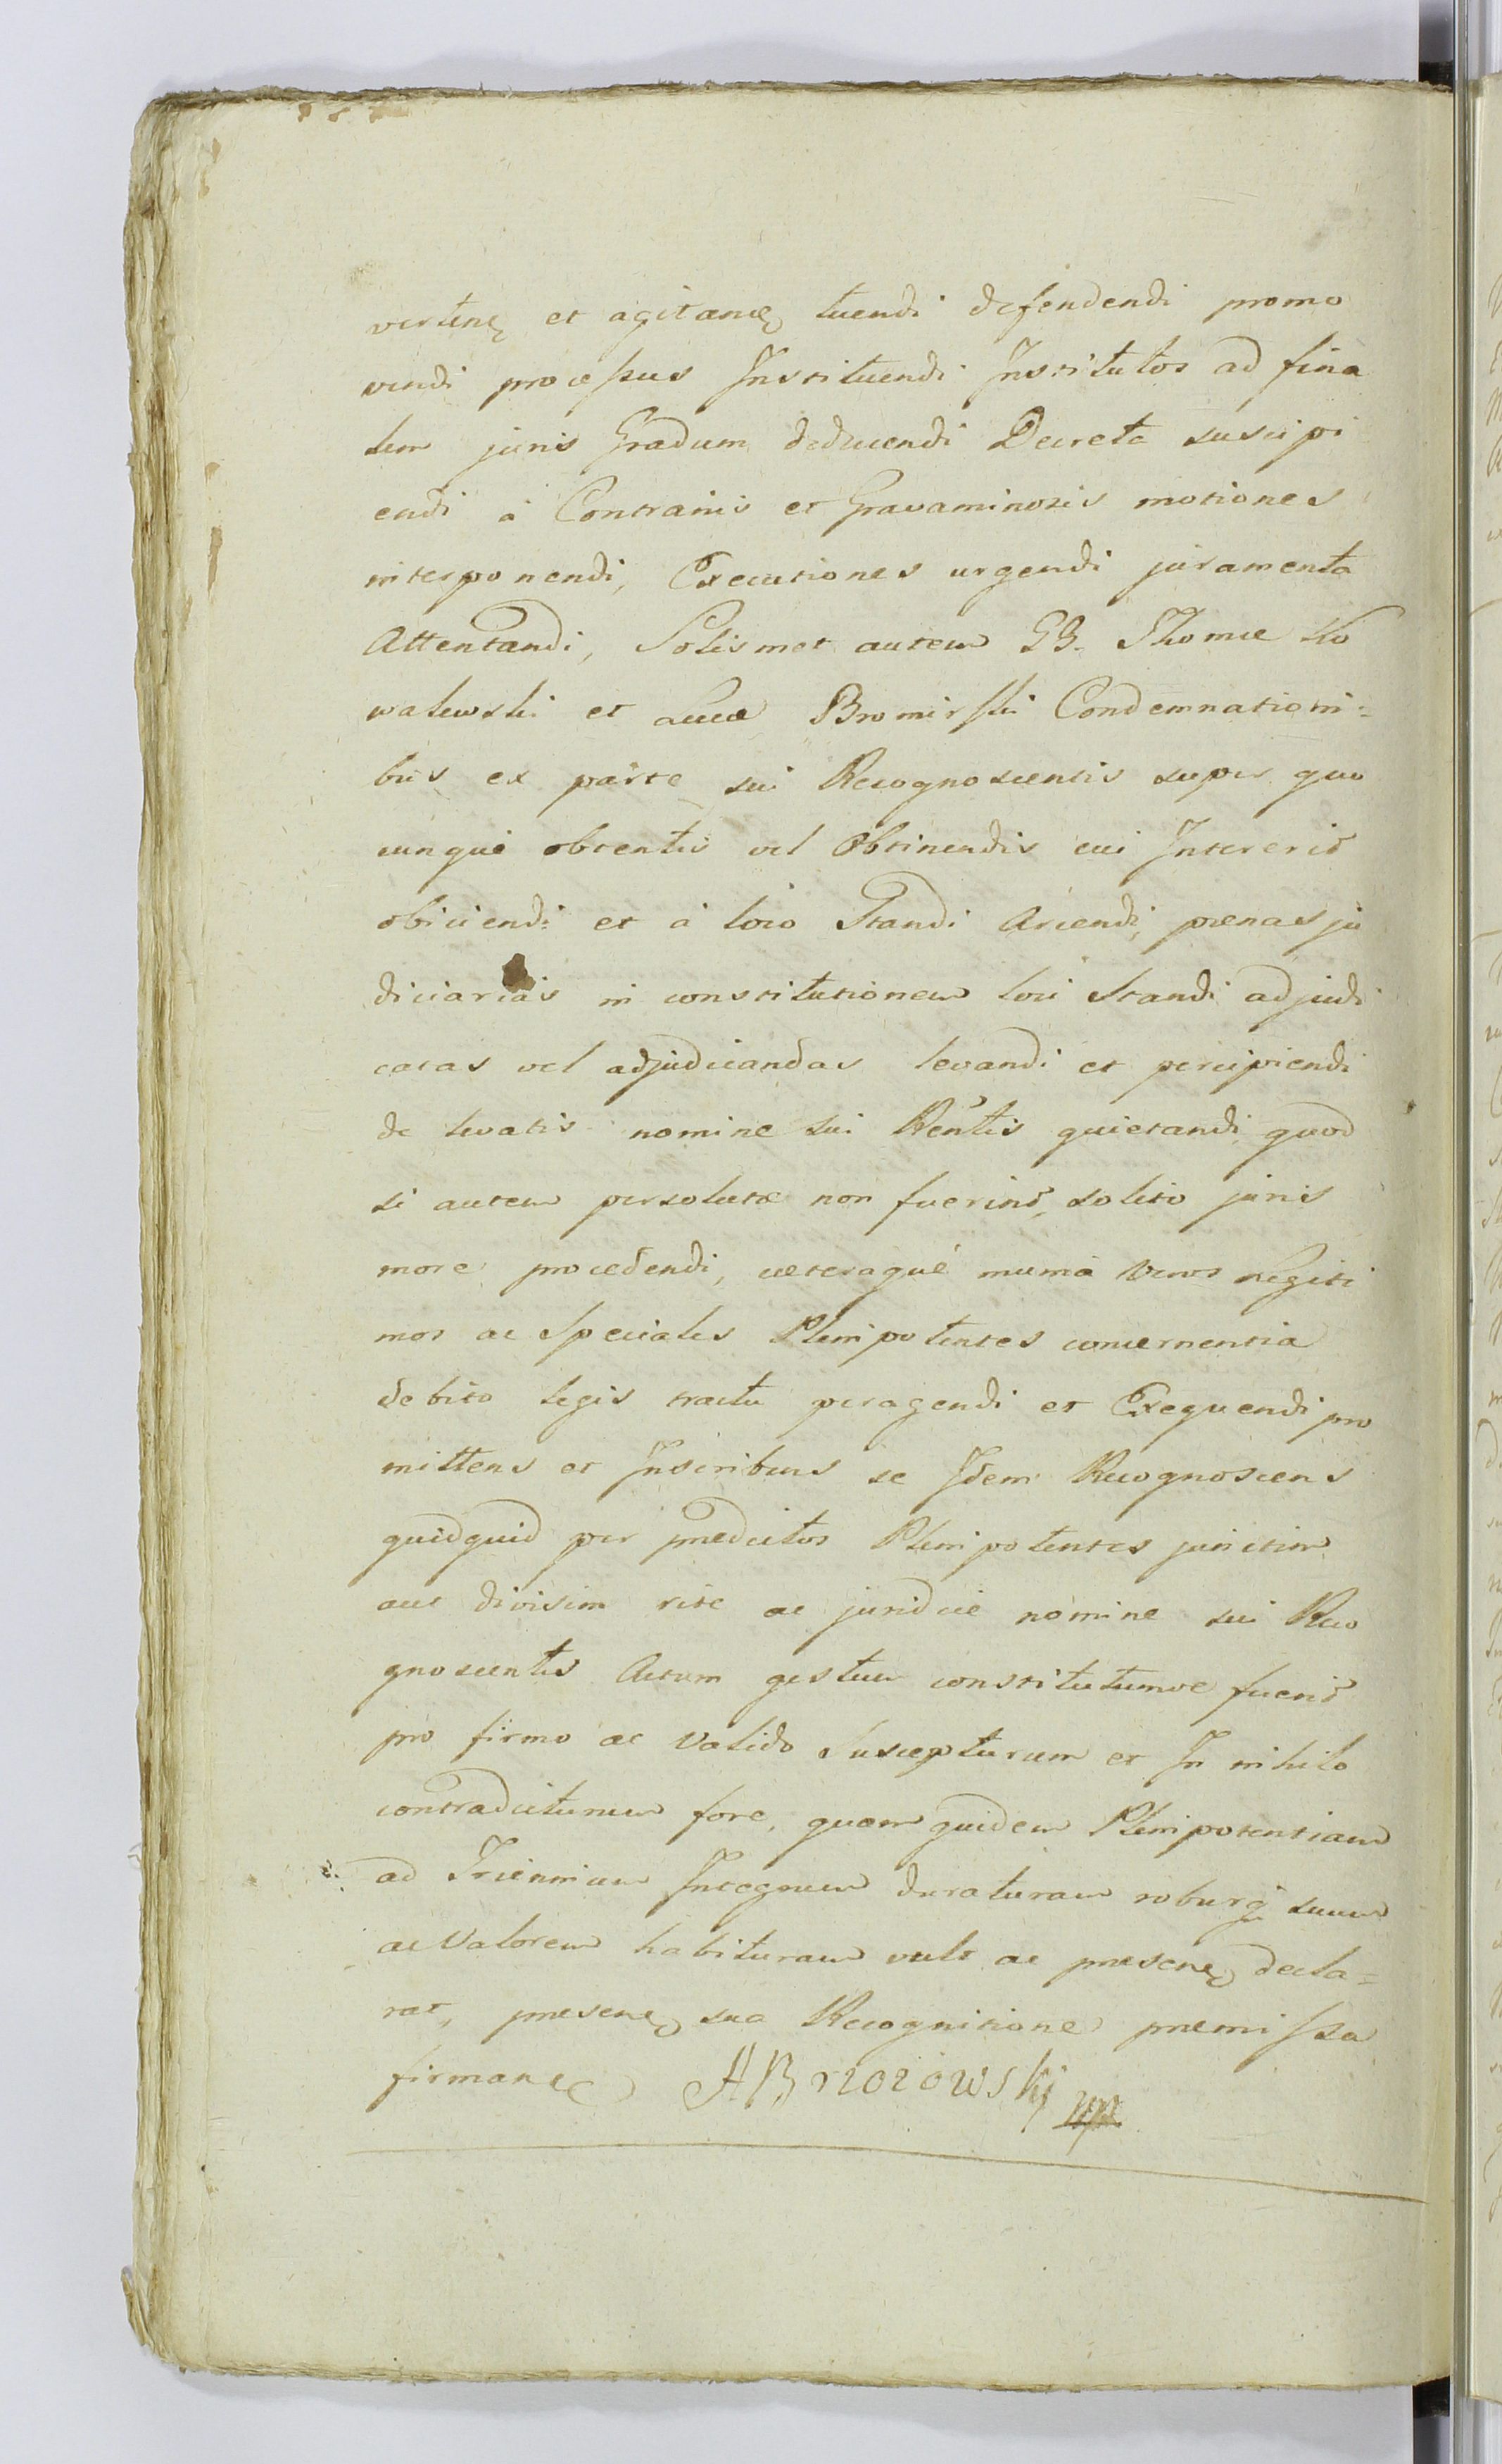 verten et agitan tuendi defendendi promo
vendi processus Instituendi Institutos ad fina
lem juris Gradum deducendi Decreta suscipi
endi à Contrariis et Gravaminosis motiones
interponendi, Executiones urgendi juramenta
Attentandi, Solismet autem GG. Thomæ Ko
walewski et Lucæ Bromirski Condemnationi=
bus ex parte sui Recognoscentis super quo
cunque obtentis vel Obtinendis cui Intererit
obiiciendi et à loco Standi Arcendi, pænas ju
diciarias in constitutionem loci Standi adjudi
catas vel adjudicandas levandi et percipiendi
de levatis nomine sui Rentis quietandi quod
si autem persolutæ non fuerint, solito juris
more procedendi, cæteraque munia veros Legiti
mos ac Speciales Plenipotentes concernentia
debito legis tractu peragendi et Exequendi pro
mittens et Inscribens se Idem Recognoscens
quidquid per prædictos Plenipotentes junctim
aut divisim rite ac juridice nomine sui Reco
gnoscentis Actum gestum constitutumve fuerit
pro firmo ac valido Suscepturum et In nihilo
contradicturum fore, quam quidem Plenipotentiam
ad Triennium Integrum duraturam roburq suum
ac Valorem habituram vult ac præsen decla=
rat, præsen sua Recognitione præmissa
firman ABrzozowski mp